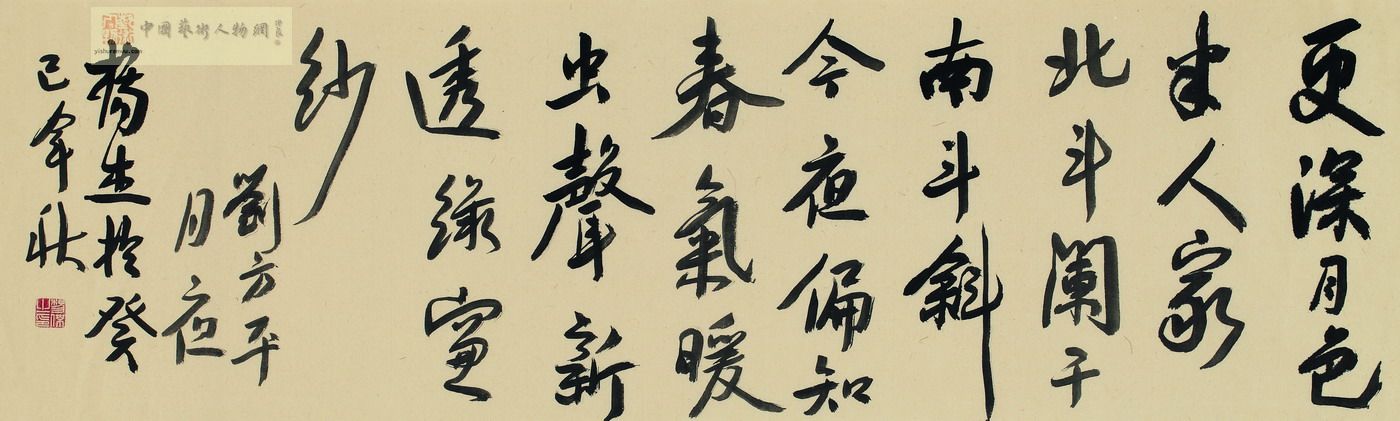 更深月色
半人家
北斗闌干
南斗斜
今夜偏知
春氣暖
虫聲新
透綠窗
紗
劉方平
月夜
楊生於癸
巳年秋
中國藝術人物網
yishurenwu.com